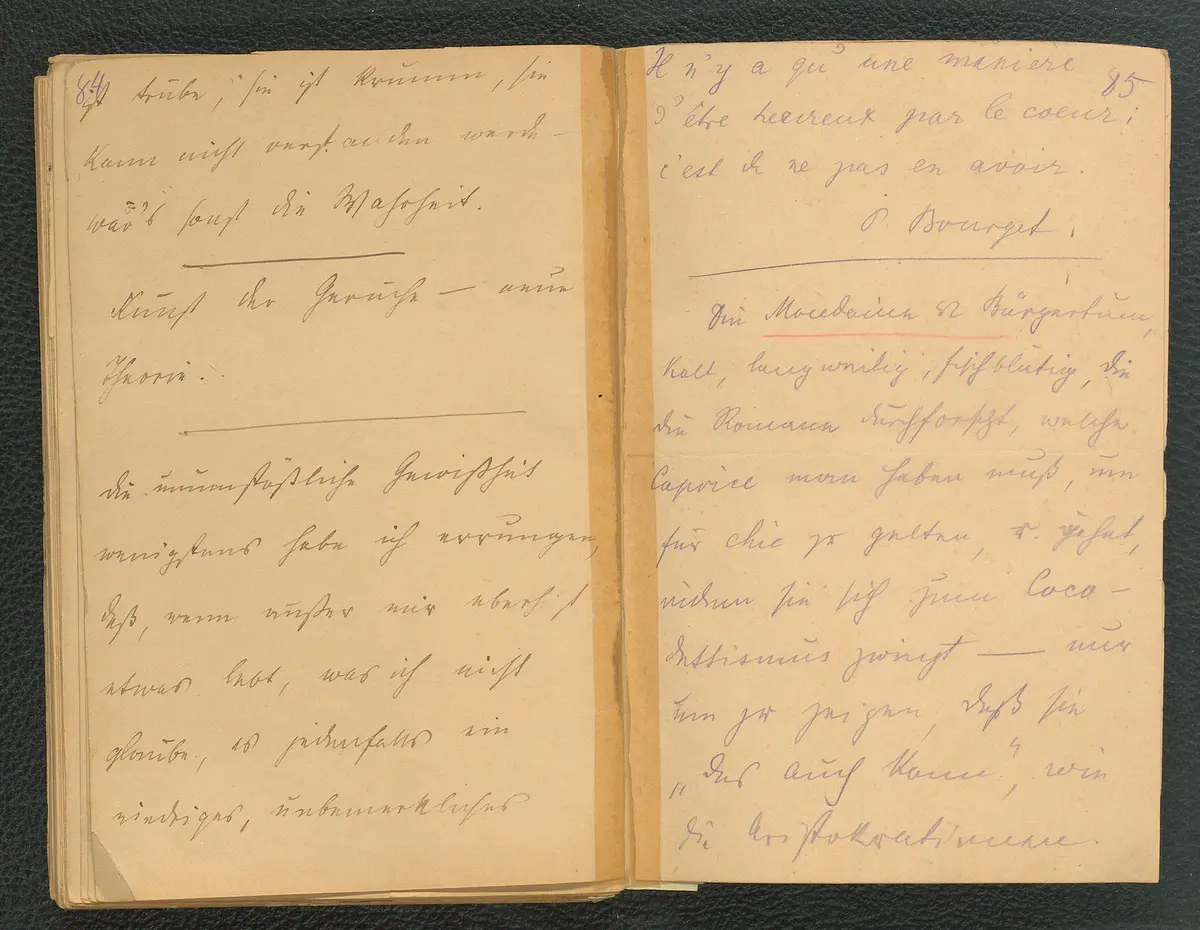 84
ist trübe, sie ist krumm, sie
kann nicht verstanden werde –
wär's sonst die Wahrheit.
Kunst der Gerüche – neue
Theorie.
die unumstößliche Gewißheit
wenigstens habe ich errungen,
daß, wenn außer mir überhpt
etwas lebt, was ich nicht
glaube, es jedenfalls ein
niedriges, unbemerkliches
85
Il n'y a qu'une manière
d'être heureux par le coeur;
c'est de ne pas en avoir.
P. Bourget.
Die Mondaine d. Bürgertum,
kalt, langweilig, fischblütig, die
die Romane durchforscht, welche
Caprice man haben muß, um
für chic zu gelten, u.
sie sich zum Coco-
dettismus zwingt — nur
um zu zeigen, daß sie
„das auch kann", wie
die Aristokratinnen.